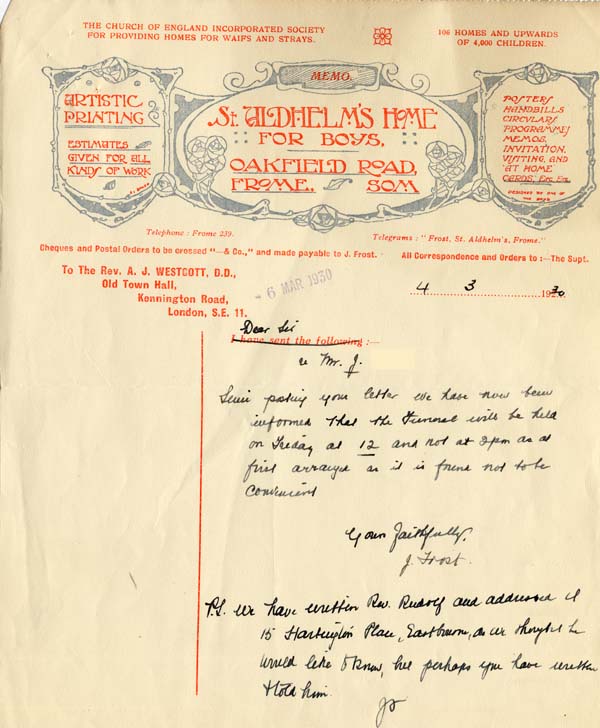 THE CHURCH OF ENGLAND INCORPORATED SOCIETY
FOR PROVIDING HOMES FOR WAIFS AND STRAYS.
106 HOMES AND UPWARDS
OF 4,000 CHILDREN.
MEMO.
ARTISTIC
PRINTING
ESTIMATES
GIVEN FOR ALL
KINDS OF WORK
St. ALDHELM'S HOME
FOR BOYS,
OAKFIELD ROAD,
FROME, SOM
POSTERS
HANDBILLS
CIRCULARS
PROGRAMMES
MEMOS,
INVITATION,
VISITING, AND
AT HOME
CARDS, Etc, Etc.
DESIGNED BY ONE OF
THE BOYS
Telephone : Frome 239.
Telegrams : "Frost, St. Aldhelm's, Frome."
Cheques and Postal Orders to be crossed "—& Co.," and made payable to J. Frost.
All Correspondence and Orders to :—The Supt.
To The Rev. A. J. WESTCOTT, D.D.,
Old Town Hall,
Kennington Road,
London, S.E. 11.
- 6 MAR 1930
4 3 1930
Dear Sir
I have sent the following :—
re Mr. J.
Since posting your letter we have now been
informed that the Funeral will be held
on Friday at 12 and not at 2pm as at
first arranged as it is found not to be
convenient
Yours Faithfully,
J. Frost.
P.S. We have written Rev. Rudolf and addressed it
15 Hartington Place, Eastbourne, as we thought he
would like to know, but perhaps you have written
& told him.
JF